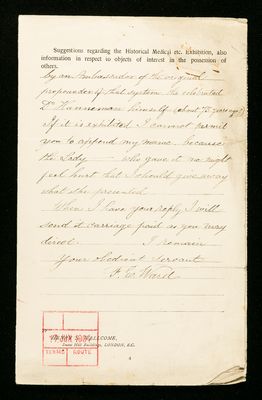 Suggestions regarding the Historical Medical etc. Exhibition, also
information in respect to objects of interest in the possession of
others.
by an Ambassador of the original
propounder of that system the celebrated
Dr Hanneman himself (about 75 years ago)
If it is exhibited I cannot permit
you to append my name because
the Lady who gave it me might
feel hurt that I should give away
what she presented
When I have your reply I will
send it carriage paid as you may
direct. I remain
Your obedient Servant
F. E. Ward
HENRY S. WELLCOME,
Snow Hill Buildings, LONDON, E.C.
TERMS ROUTE
4